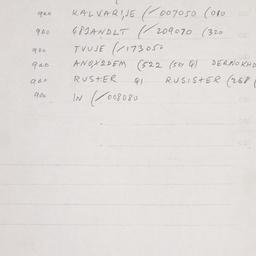 900 KALVARIJE (/007050 (080
900 GBJANDLT (/209070 (320
900 TVUJE (/173050
900 ANQXZDEM (522 (501 Q) DERNOKHD
900 RUSTER Q) RUSISTER (268 (
900 IN (/008080